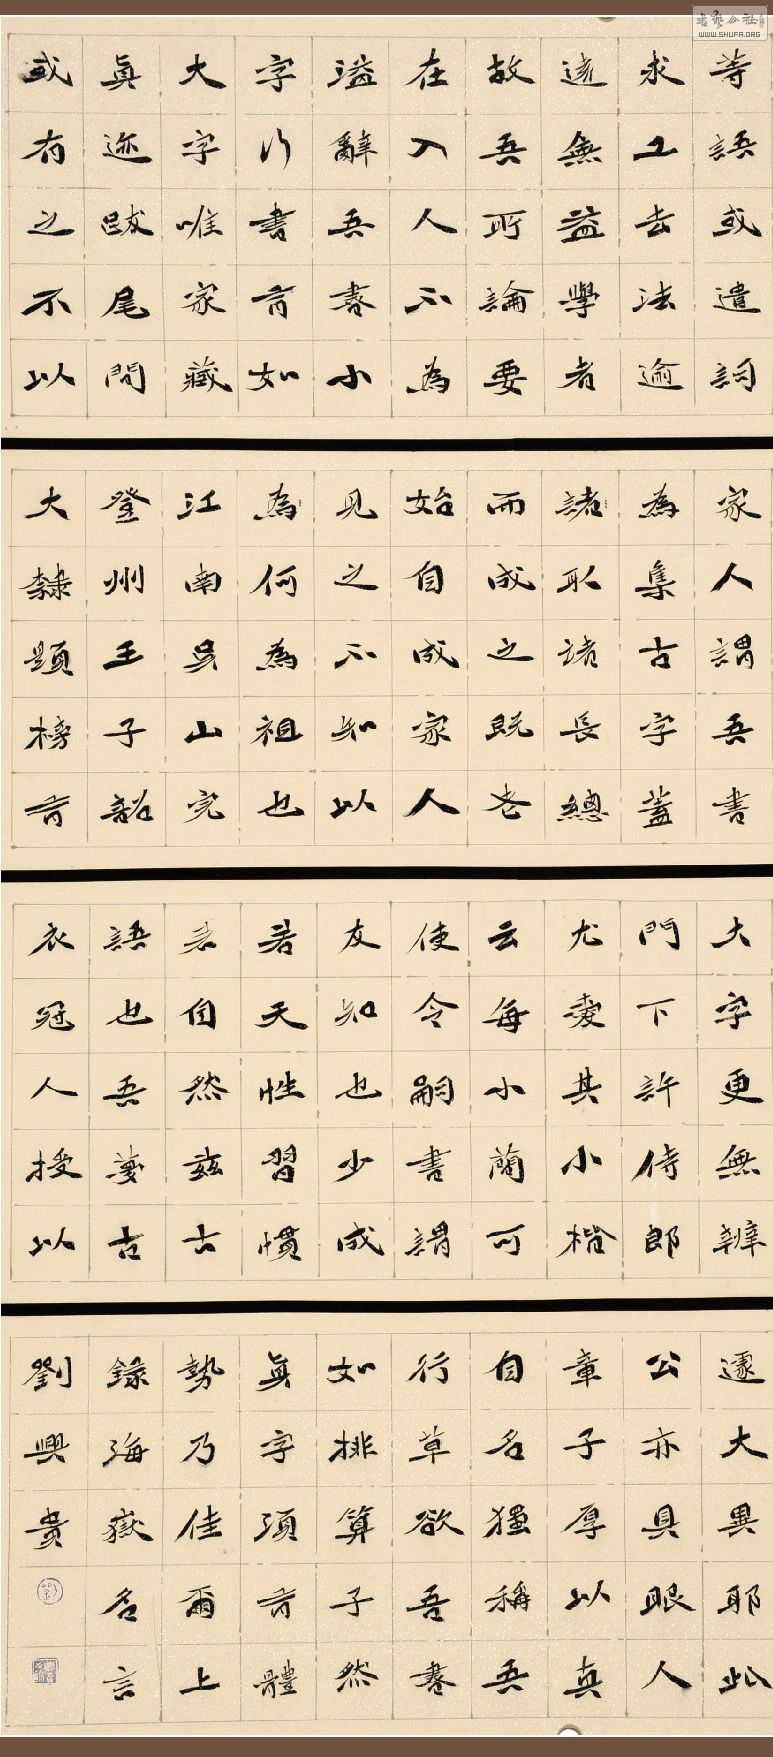 等語或遣詞
求工去法逾
遠無益學者
故吾所論要
在入人不為
溢辭吾書小
字行書有如
大字唯家藏
眞迹跋尾間
或有之不以
家人謂吾書
為集古字蓋
諸取諸長總
而成之既老
始自成家人
見之不知以
為何為祖也
江南吳山完
登州王子韶
大隸題榜有
大字更無辨
門下許侍郎
尤愛其小楷
云每小簡可
使令嗣書謂
友知也少成
若天性習慣
若自然茲古
語也吾夢古
衣冠人授以
遽大異耶此
公亦具眼人
章子厚以真
自名獨稱吾
行草欲吾書
如排算子然
真字須有體
勢乃佳爾上
錄海嶽名言
劉興貴
WWW.SHUFA.ORG